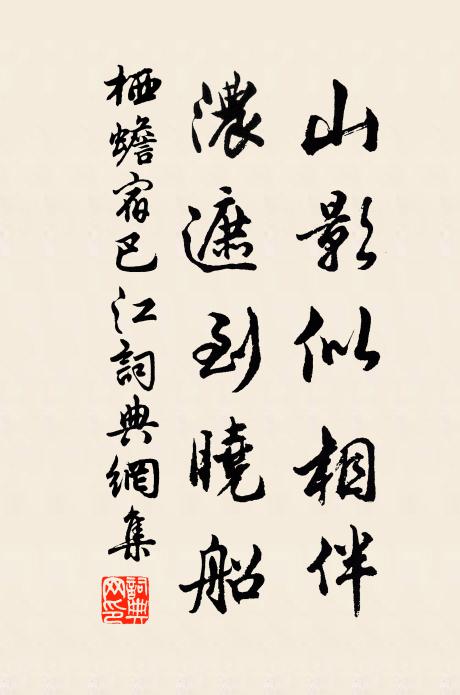 山影似相伴
濃遮到曉船
栖蟾宿巴江詞典網集
詞典
网印